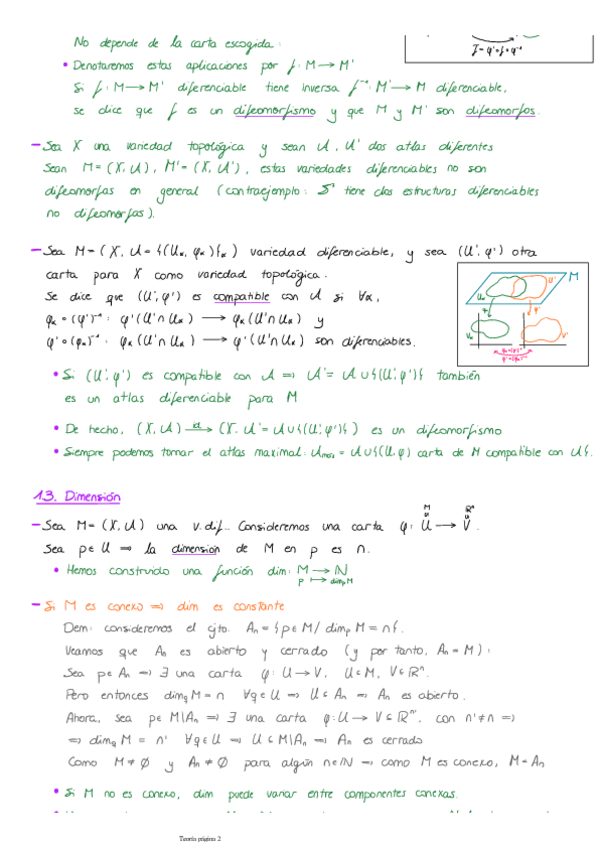 No depende de la carta escogida.
f̃ = φ'∘f∘φ⁻¹
• Denotaremos estas aplicaciones por f: M → M'
Si f: M → M' diferenciable tiene inversa f⁻¹: M' → M diferenciable,
se dice que f es un difeomorfismo y que M y M' son difeomorfos.
– Sea X una variedad topológica y sean U, U' dos atlas diferentes
Sean M = (X, U), M' = (X, U'), estas variedades diferenciables no son
difeomorfas en general (contraejemplo: S⁷ tiene dos estructuras diferenciables
no difeomorfas).
– Sea M = (X, U = {(Uα, φα)}α) variedad diferenciable, y sea (U', φ') otra
carta para X como variedad topológica.
Se dice que (U', φ') es compatible con U si ∀α,
φα∘(φ')⁻¹: φ'(U'∩Uα) → φα(U'∩Uα) y
φ'∘(φα)⁻¹: φα(U'∩Uα) → φ'(U'∩Uα) son diferenciables.
M
Uα U'
φα φ'
Vα V'
• Si (U', φ') es compatible con U ⟹ U' = U∪{(U', φ')} también
es un atlas diferenciable para M
• De hecho, (X, U) →id (X, U' = U∪{(U', φ')}) es un difeomorfismo
• Siempre podemos tomar el atlas maximal: Umax = U∪{(U, φ) carta de M compatible con U}.
1.3. Dimensión
– Sea M = (X, U) una v. dif.. Consideremos una carta φ: U → V.
M ℝⁿ
Sea p∈U ⟹ la dimension de M en p es n.
• Hemos construido una función dim: M → ℕ
p ↦ dimₚM
– Si M es conexo ⟹ dim es constante
Dem: consideremos el cjto. Aₙ = {p∈M / dimₚ M = n}.
Veamos que Aₙ es abierto y cerrado (y por tanto, Aₙ = M):
Sea p∈Aₙ ⟹ ∃ una carta φ: U → V, U⊆M, V⊆ℝⁿ.
Pero entonces dim_q M = n ∀q∈U ⟹ U⊆Aₙ ⟹ Aₙ es abierto.
Ahora, sea p∈M\Aₙ ⟹ ∃ una carta φ: U → V⊆ℝⁿ', con n'≠n ⟹
⟹ dim_q M = n' ∀q∈U ⟹ U⊆M\Aₙ ⟹ Aₙ es cerrado
Como M≠∅ y Aₙ≠∅ para algún n∈ℕ ⟹ como M es conexo, M = Aₙ
• Si M no es conexo, dim puede variar entre componentes conexas.
Teoría página 2